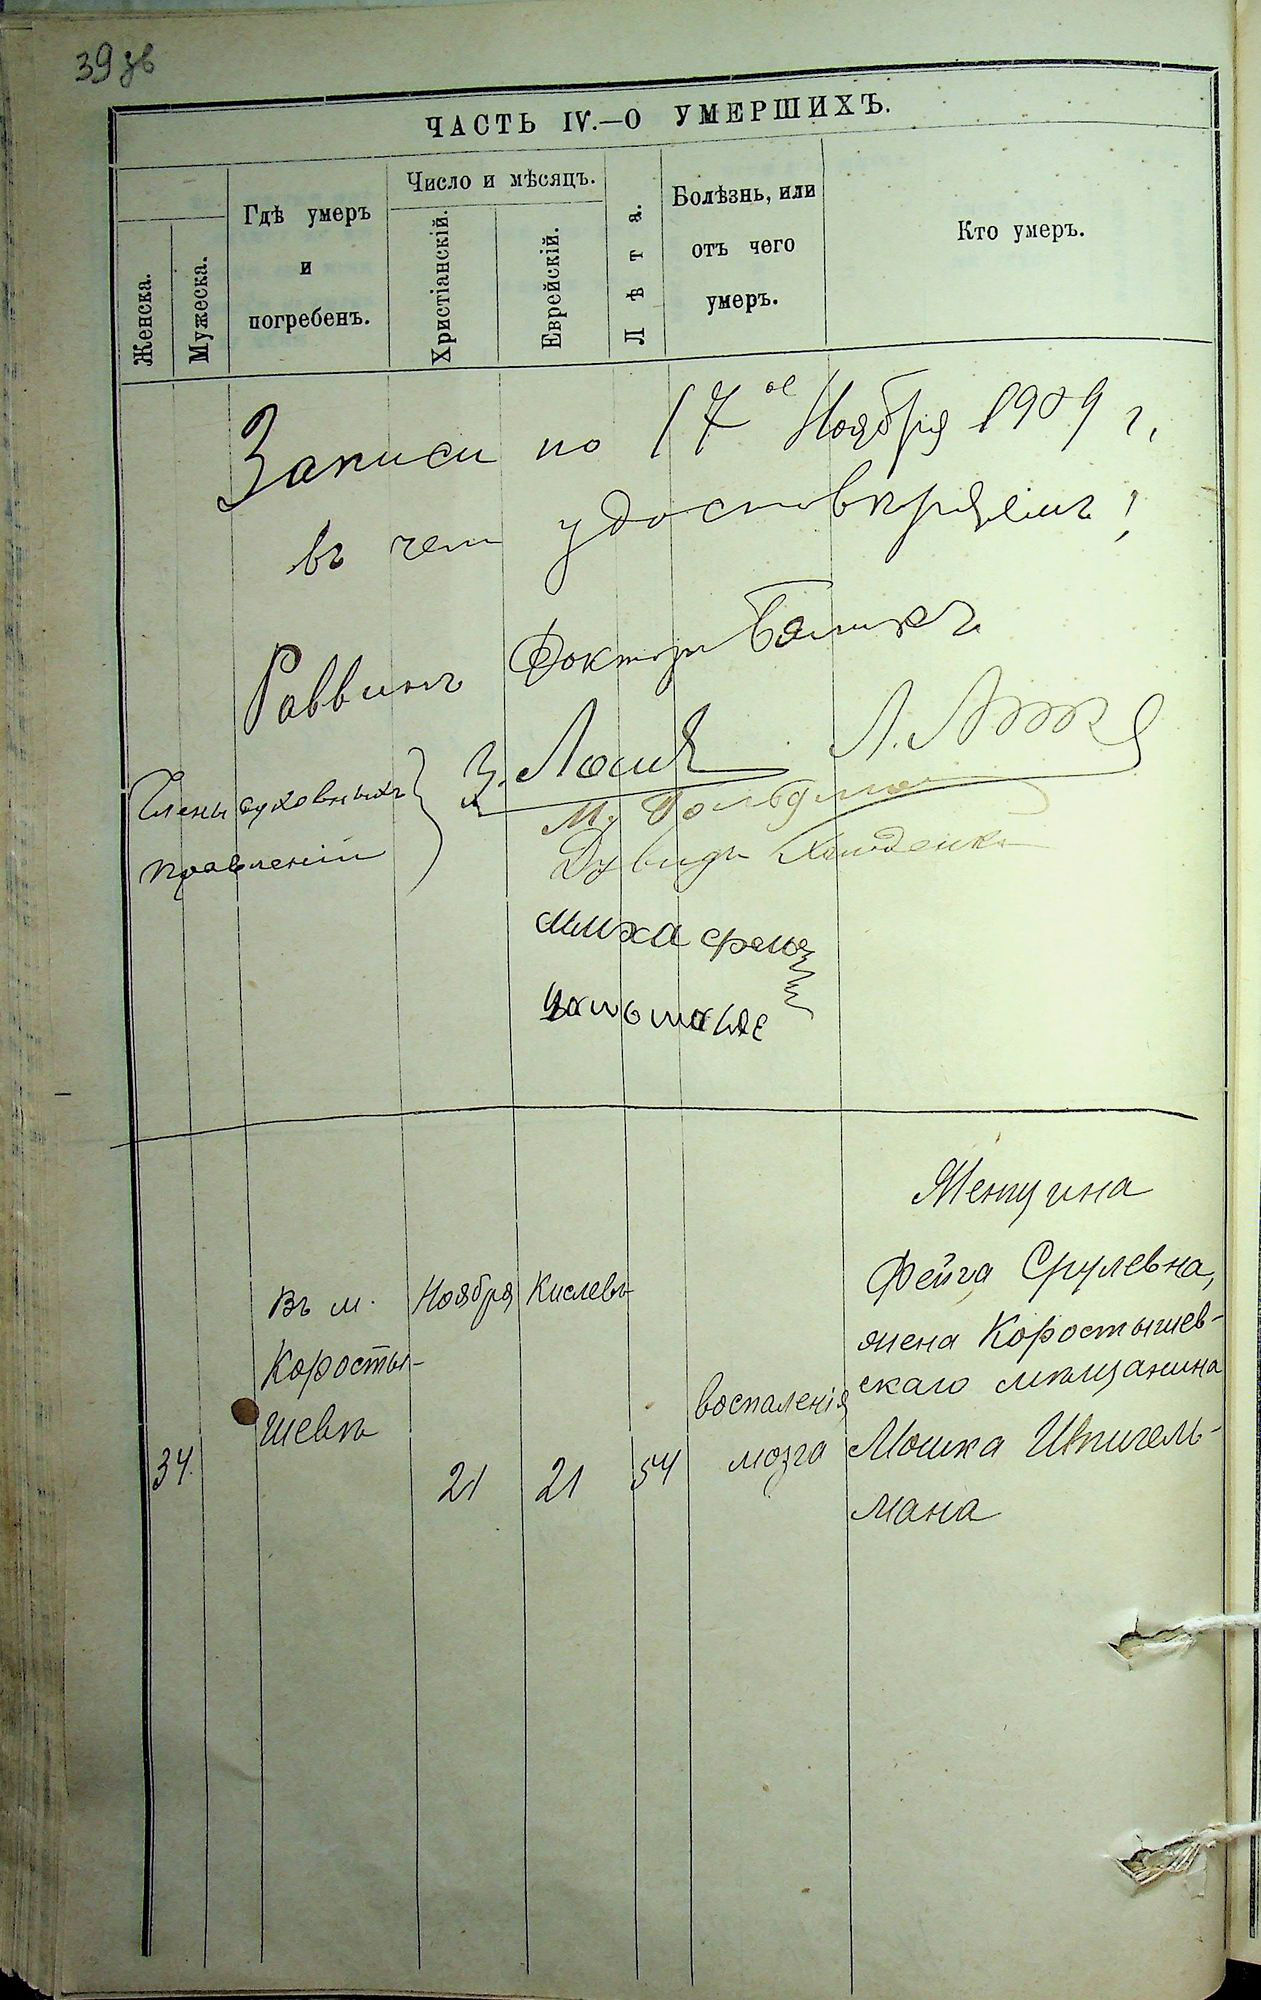 39 зв
ЧАСТЬ IV.—О УМЕРШИХЪ.
Женска.
Мужеска.
Гдѣ умеръ
и
погребенъ.
Число и мѣсяцъ.
Христіанскій.
Еврейскій.
Лѣта.
Болѣзнь, или
отъ чего
умеръ.
Кто умеръ.
Записи по 17ое Ноября 1909 г.
въ чем удостовѣряемъ!
Раввинъ Докторъ
Члены духовныхъ
правленій
З.
Л.
М. Гольдман
Дувидъ
миха
Женщина
Въ м.
Коросты-
шевѣ
Ноября
Кислевъ
34.
21
21
54
воспаленія
мозга
Фейга Срулевна,
жена Коростышев-
скаго мѣщанина
Мошка Шпигель-
мана